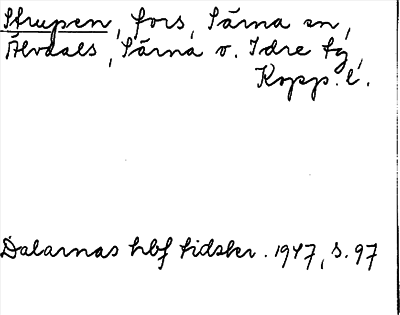 Strupen, fors, Särna sn,
Älvdals, Särna o. Idre tg,
Kopp. l.
Dalarnas hbf tidskr. 1947, s. 97